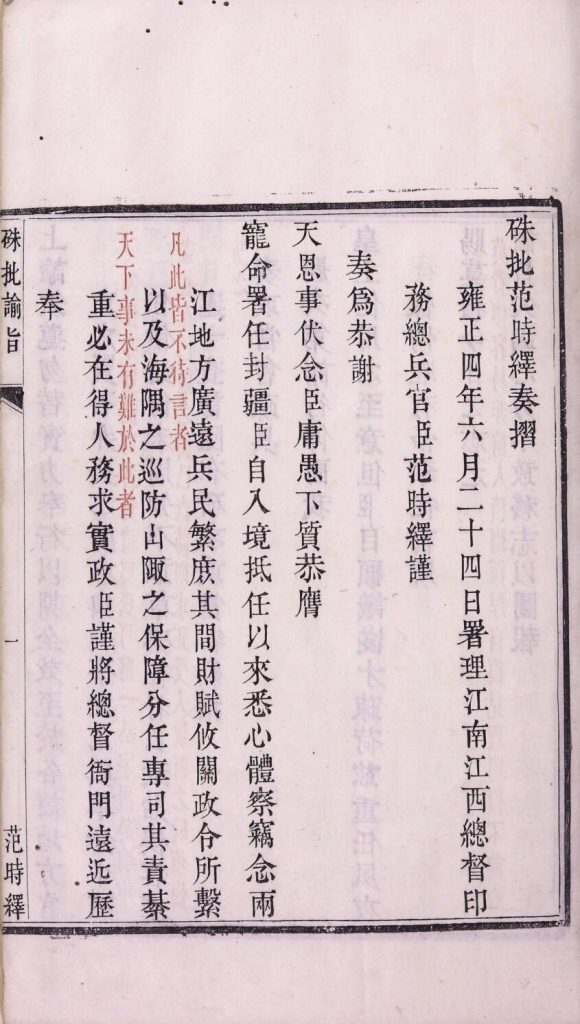 硃批范時繹奏摺
雍正四年六月二十四日署理江南江西總督印
務總兵官臣范時繹謹
奏爲恭謝
天恩事伏念臣庸愚下質恭膺
寵命署任封疆臣自入境抵任以來悉心體察竊念兩
江地方廣遠兵民繁庶其間財賦攸關政令所繫
凡此皆不待言者
以及海隅之巡防山陬之保障分任專司其責綦
天下事未有難於此者
重必在得人務求實政臣謹將總督衙門遠近歷
奉
硃批諭旨
一
范時繹